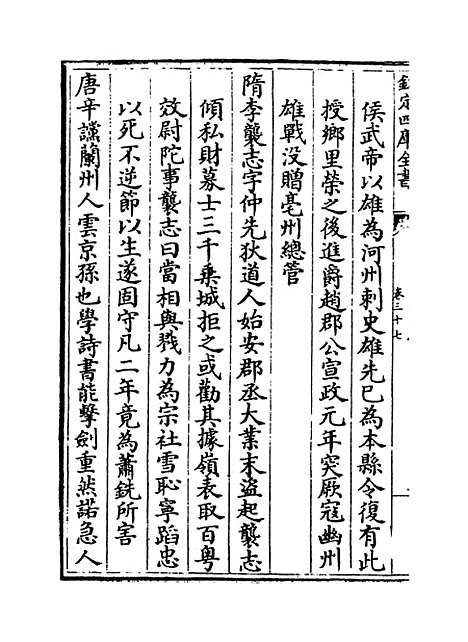 欽定四庫全書
卷三十七
侯武帝以雄為河州刺史雄先已為本縣令復有此
授鄉里榮之後進爵趙郡公宣政元年突厥冦幽州
雄戰没贈亳州總管
隋李襲志字仲先狄道人始安郡丞大業末盗起襲志
傾私財募士三千乗城拒之或勸其據嶺表取百粤
效尉陀事襲志曰當相與戮力為宗社雪恥寧蹈忠
以死不逆節以生遂固守凡二年竟為蕭銑所害
唐辛讜蘭州人雲京孫也學詩書能擊劍重然諾急人